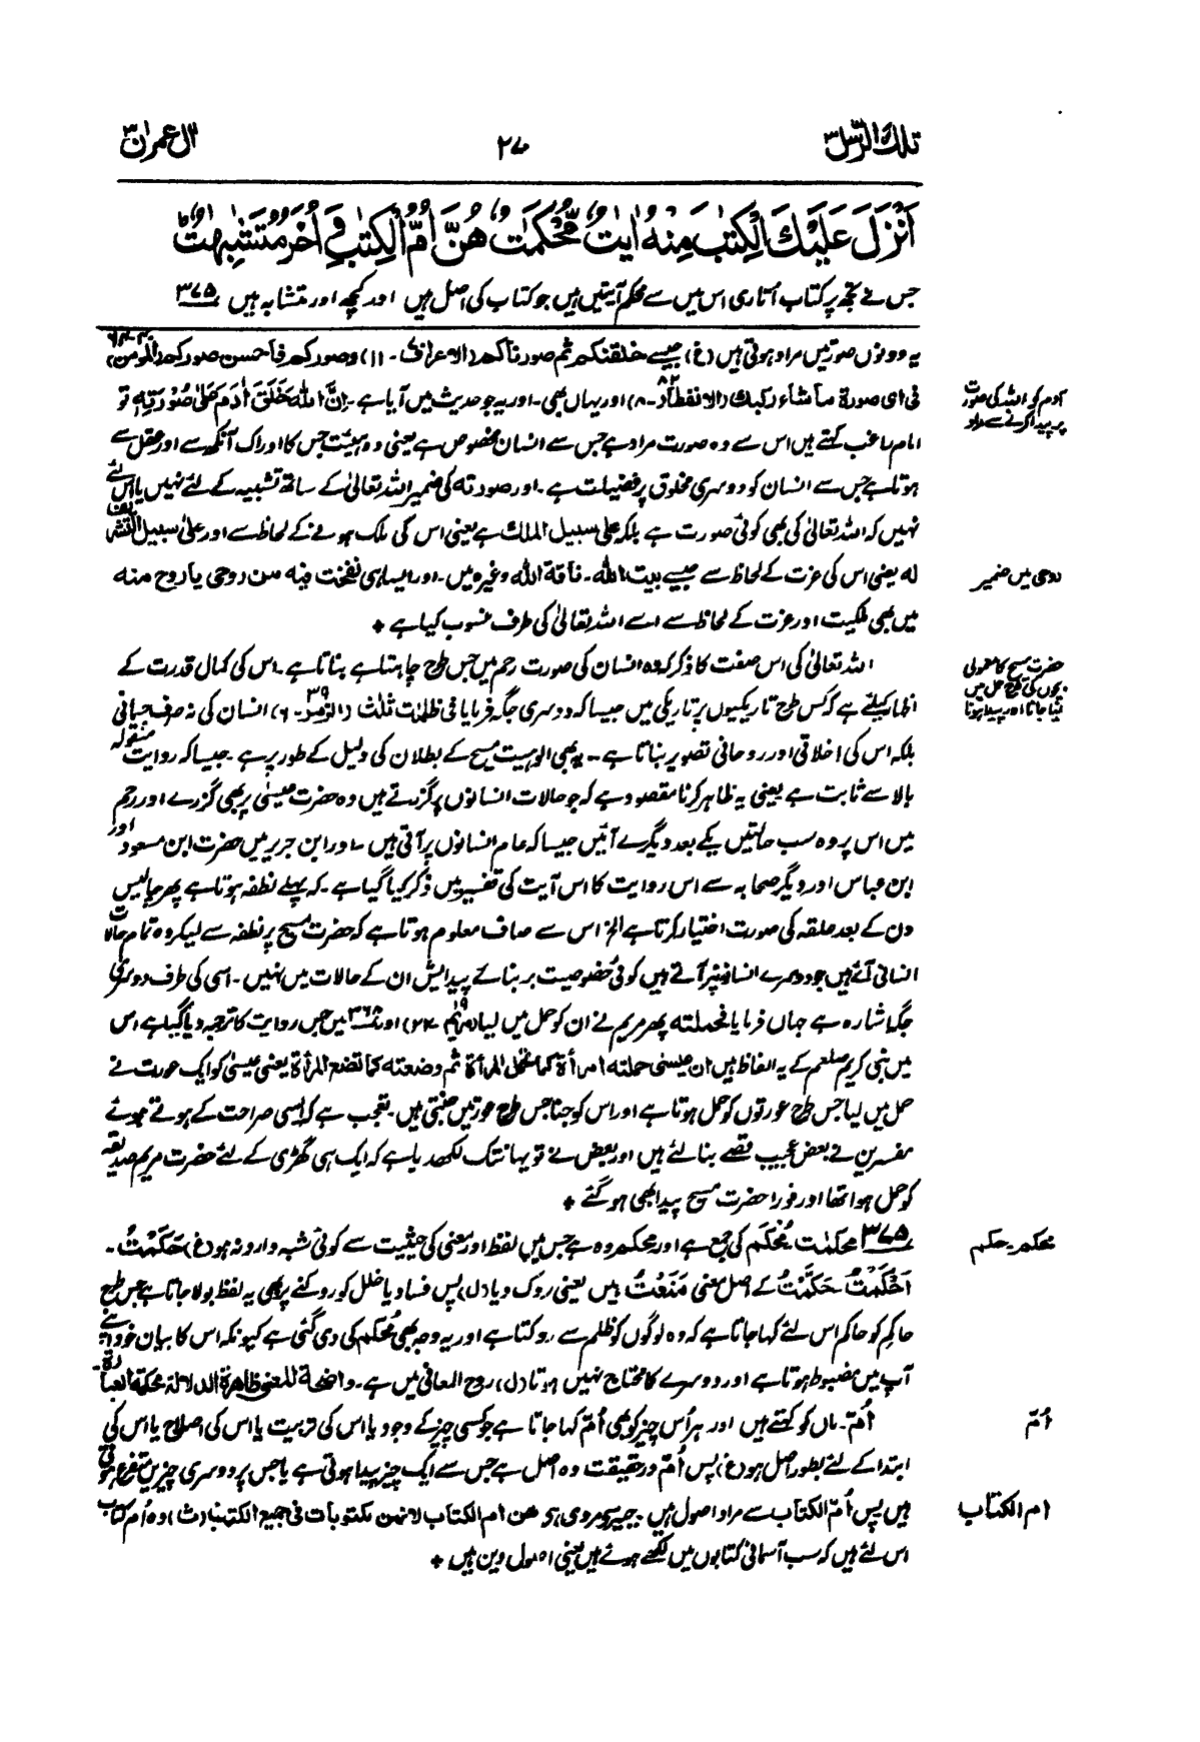 تلك الرسل ۳
۲۷
اٰل عمرٰن ۳
اَنْزَلَ عَلَيْكَ الْكِتٰبَ مِنْهُ اٰيٰتٌ مُّحْكَمٰتٌ هُنَّ اُمُّ الْكِتٰبِ وَ اُخَرُ مُتَشٰبِهٰتٌ ؕ
جس نے تجھ پر کتاب اُتاری اس میں سے محکم آیتیں ہیں جو کتاب کی اصل ہیں اور کچھ اور متشابہ ہیں ۳۷۵
یہ دونوں صورتیں مراد ہوتی ہیں (غ) جیسے خلقنٰکم ثم صورنٰکم (الاعراف ۷-۱۱) وصورکم فاحسن صورکم (المومن ۴۰-۶۴)
فی ای صورۃ ما شاء رکبک (الانفطار ۸۲-۸) اور یہاں بھی۔ اور یہ جو حدیث میں آیا ہے۔ اِنَّ اللہَ خَلَقَ اٰدَمَ عَلیٰ صُوْرَتِہٖ تو
آدم کو اللہ کی صورت
پر پیدا کرنے سے مراد
امام راغب کہتے ہیں اس سے وہ صورت مراد ہے جس سے انسان مخصوص ہے یعنی وہ ہیئت جس کا ادراک آنکھ سے اور عقل سے
ہوتا ہے جس سے انسان کو دوسری مخلوق پر فضیلت ہے۔ اور صورتہ کی ضمیر اللہ تعالیٰ کے ساتھ تشبیہ کے لئے نہیں یا اس لئے
نہیں کہ اللہ تعالیٰ کی بھی کوئی صورت ہے بلکہ علی سبیل الملک ہے یعنی اس کی ملک ہونے کے لحاظ سے اور علیٰ سبیل التشریف
لہ یعنی اس کی عزت کے لحاظ سے جیسے بیت اللہ۔ ناقۃ اللہ وغیرہ میں۔ اور ایسا ہی نفخت فیہ من روحی یا روح منہ
روحی میں ضمیر
میں بھی ملکیت اور عزت کے لحاظ سے اسے اللہ تعالیٰ کی طرف منسوب کیا ہے ٭
اللہ تعالیٰ کی اس صفت کا ذکر کہ وہ انسان کی صورت رحم میں جس طرح چاہتا ہے بناتا ہے۔ اس کی کمال قدرت کے
حضرت مسیح کا معمولی
بچوں کی طرح حمل میں
لیا جانا اور پیدا ہونا
اظہار کیلئے ہے کہ کس طرح تاریکیوں پر تاریکی میں جیسا کہ دوسری جگہ فرمایا فی ظلمات ثلث (الزمر ۳۹-۶) انسان کی نہ صرف جسمانی
بلکہ اس کی اخلاقی اور روحانی تصویر بناتا ہے۔ یہ بھی الوہیت مسیح کے بطلان کی دلیل کے طور پر ہے۔ جیسا کہ روایت منقولہ
بالا سے ثابت ہے یعنی یہ ظاہر کرنا مقصود ہے کہ جو حالات انسانوں پر گزرتے ہیں وہ حضرت عیسیٰ پر بھی گزرے اور رحم
میں اس پر وہ سب حالتیں یکے بعد دیگرے آئیں جیسا کہ عام انسانوں پر آتی ہیں۔ اور ابن جریر میں حضرت ابن مسعود اور
ابن عباس اور دیگر صحابہ سے اس روایت کا اس آیت کی تفسیر میں ذکر کیا گیا ہے۔ کہ پہلے نطفہ ہوتا ہے پھر چالیس
دن کے بعد علقہ کی صورت اختیار کرتا ہے الخ اس سے صاف معلوم ہوتا ہے کہ حضرت مسیح پر نطفہ سے لیکر وہ تمام حالات
انسانی آئے ہیں جو دوسرے انسانوں پر آتے ہیں کوئی خصوصیت بر بنائے پیدایش ان کے حالات میں نہیں۔ اسی کی طرف دوسری
جگہ اشارہ ہے جہاں فرمایا فحملتہ پھر مریم نے ان کو حمل میں لیا (مریم ۱۹-۲۲) اور ۳۶۸ میں جس روایت کا ترجمہ دیا گیا ہے اس
میں نبی کریم صلعم کے یہ الفاظ ہیں ان عیسی حملتہ امرأۃ کما تحمل المرأۃ ثم وضعتہ کما تضع المرأۃ یعنی عیسیٰ کو ایک عورت نے
حمل میں لیا جس طرح عورتوں کو حمل ہوتا ہے اور اس کو جنا جس طرح عورتیں جنتی ہیں۔ تعجب ہے کہ ایسی صراحت کے ہوتے ہوئے
مفسرین نے بعض عجیب قصے بنا لئے ہیں اور بعض نے تو یہانتک لکھدیا ہے کہ ایک ہی گھڑی کے لئے حضرت مریم صدیقہ
کو حمل ہوا تھا اور فوراً حضرت مسیح پیدا بھی ہو گئے ٭
۳۷۵ محکمٰت مُحْکَم کی جمع ہے اور محکم وہ ہے جس میں لفظ اور معنی کی حیثیت سے کوئی شبہ وارد نہ ہو (غ) حَکَمْتُ۔
محکم۔ حکم
اَحْکَمْتُ حَکَّمْتُ کے اصل معنی مَنَعْتُ ہیں یعنی روک دیا (ل) پس فساد یا خلل کو روکنے پر بھی یہ لفظ بولا جاتا ہے جس طرح
حاکم کو حاکم اس لئے کہا جاتا ہے کہ وہ لوگوں کو ظلم سے روکتا ہے اور یہ وجہ بھی مُحکم کی دی گئی ہے کیونکہ اس کا بیان خود اپنے
آپ میں مضبوط ہوتا ہے اور دوسرے کا محتاج نہیں ہوتا (ل) روح المعانی میں ہے۔ واضحۃ المعنی ظاھرۃ الدلالۃ محکمۃ العبارۃ۔
اُمّ۔ ماں کو کہتے ہیں اور ہر اُس چیز کو بھی اُمّ کہا جاتا ہے جو کسی چیز کے وجود یا اس کی تربیت یا اس کی اصلاح یا اس کی
اُمّ
ابتدا کے لئے بطور اصل ہو (غ) پس اُمّ درحقیقت وہ اصل ہے جس سے ایک چیز پیدا ہوتی ہے یا جس پر دوسری چیزیں متفرع ہوتی
ہیں پس اُمّ الکتاب سے مراد اصول ہیں۔ مروی ہے ھن ام الکتاب لانھن مکتوبات فی جمیع الکتب (ث) وہ اُم کتاب
ام الکتاب
اس لئے ہیں کہ سب آسمانی کتابوں میں لکھے ہوئے ہیں یعنی اصول دین ہیں ٭